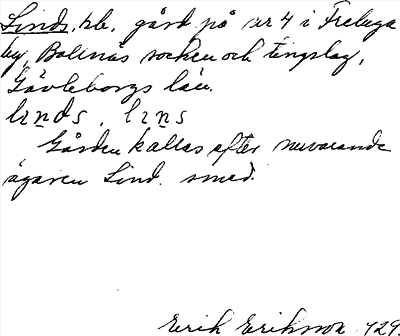 Linds, hb, gård på nr 4 i Freluga
by, Bollnäs socken och tingslag,
Gävleborgs län.
lınds, lıns
Gården kallas efter nuvarande
ägaren Lind. smed.
Erik Eriksson 1929.